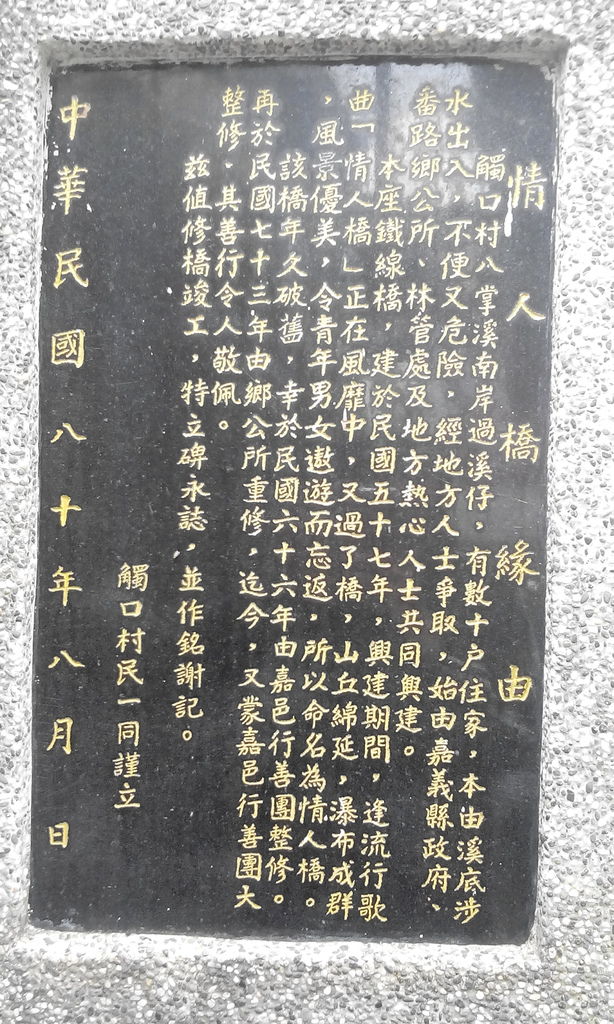 情人橋緣由
觸口村八掌溪南岸過溪仔，有數十户住家，本由溪底涉
水出入，不便又危險，經地方人士爭取，始由嘉義縣政府、
番路鄉公所、林管處及地方熱心人士共同興建。
本座鐵線橋，建於民國五十七年，興建期間，逢流行歌
曲「情人橋」正在風靡中，又過了橋，山丘綿延，瀑布成群
，風景優美，令青年男女遨遊而忘返，所以命名為情人橋。
該橋年久破舊，幸於民國六十六年由嘉邑行善團整修。
再於民國七十三年由鄉公所重修，迄今，又蒙嘉邑行善團大
整修、其善行令人敬佩。
茲值修橋竣工，特立碑永誌，並作銘謝記。
觸口村民一同謹立
中華民國八十年八月日